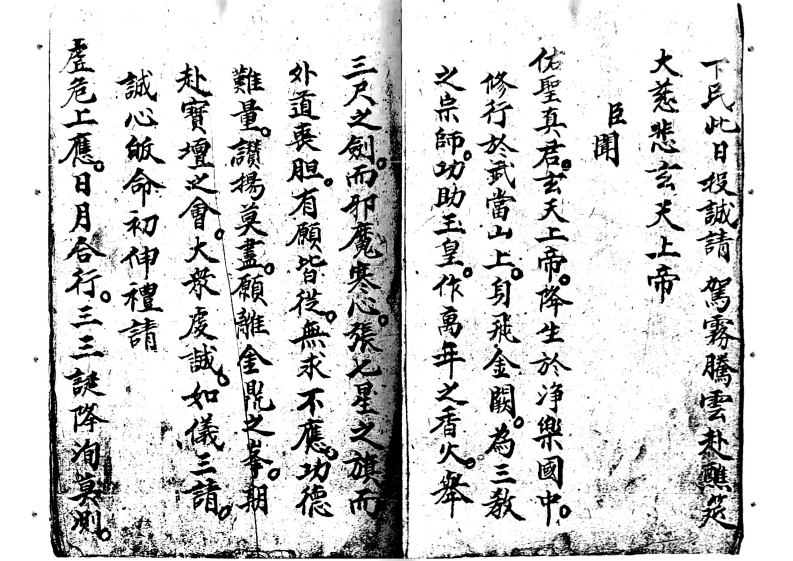 下民此日投誠請 駕霧騰雲赴醮筵
大慈悲玄天上帝
臣聞
佑聖真君。玄天上帝。降生於净樂國中。
修行於武當山上。身飛金闕。為三教
之宗師。功助玉皇。作萬年之香火。舉
三尺之劍。而邪魔寒心。張七星之旗而
外道喪胆。有願皆從。無求不應。功德
難量。讃揚莫盡。願離金鼎之峯。期
赴寶壇之會。大衆虔誠。如儀三請。
誠心皈命初伸禮請
虛危上應。日月合行。三三誕降洵莫測。